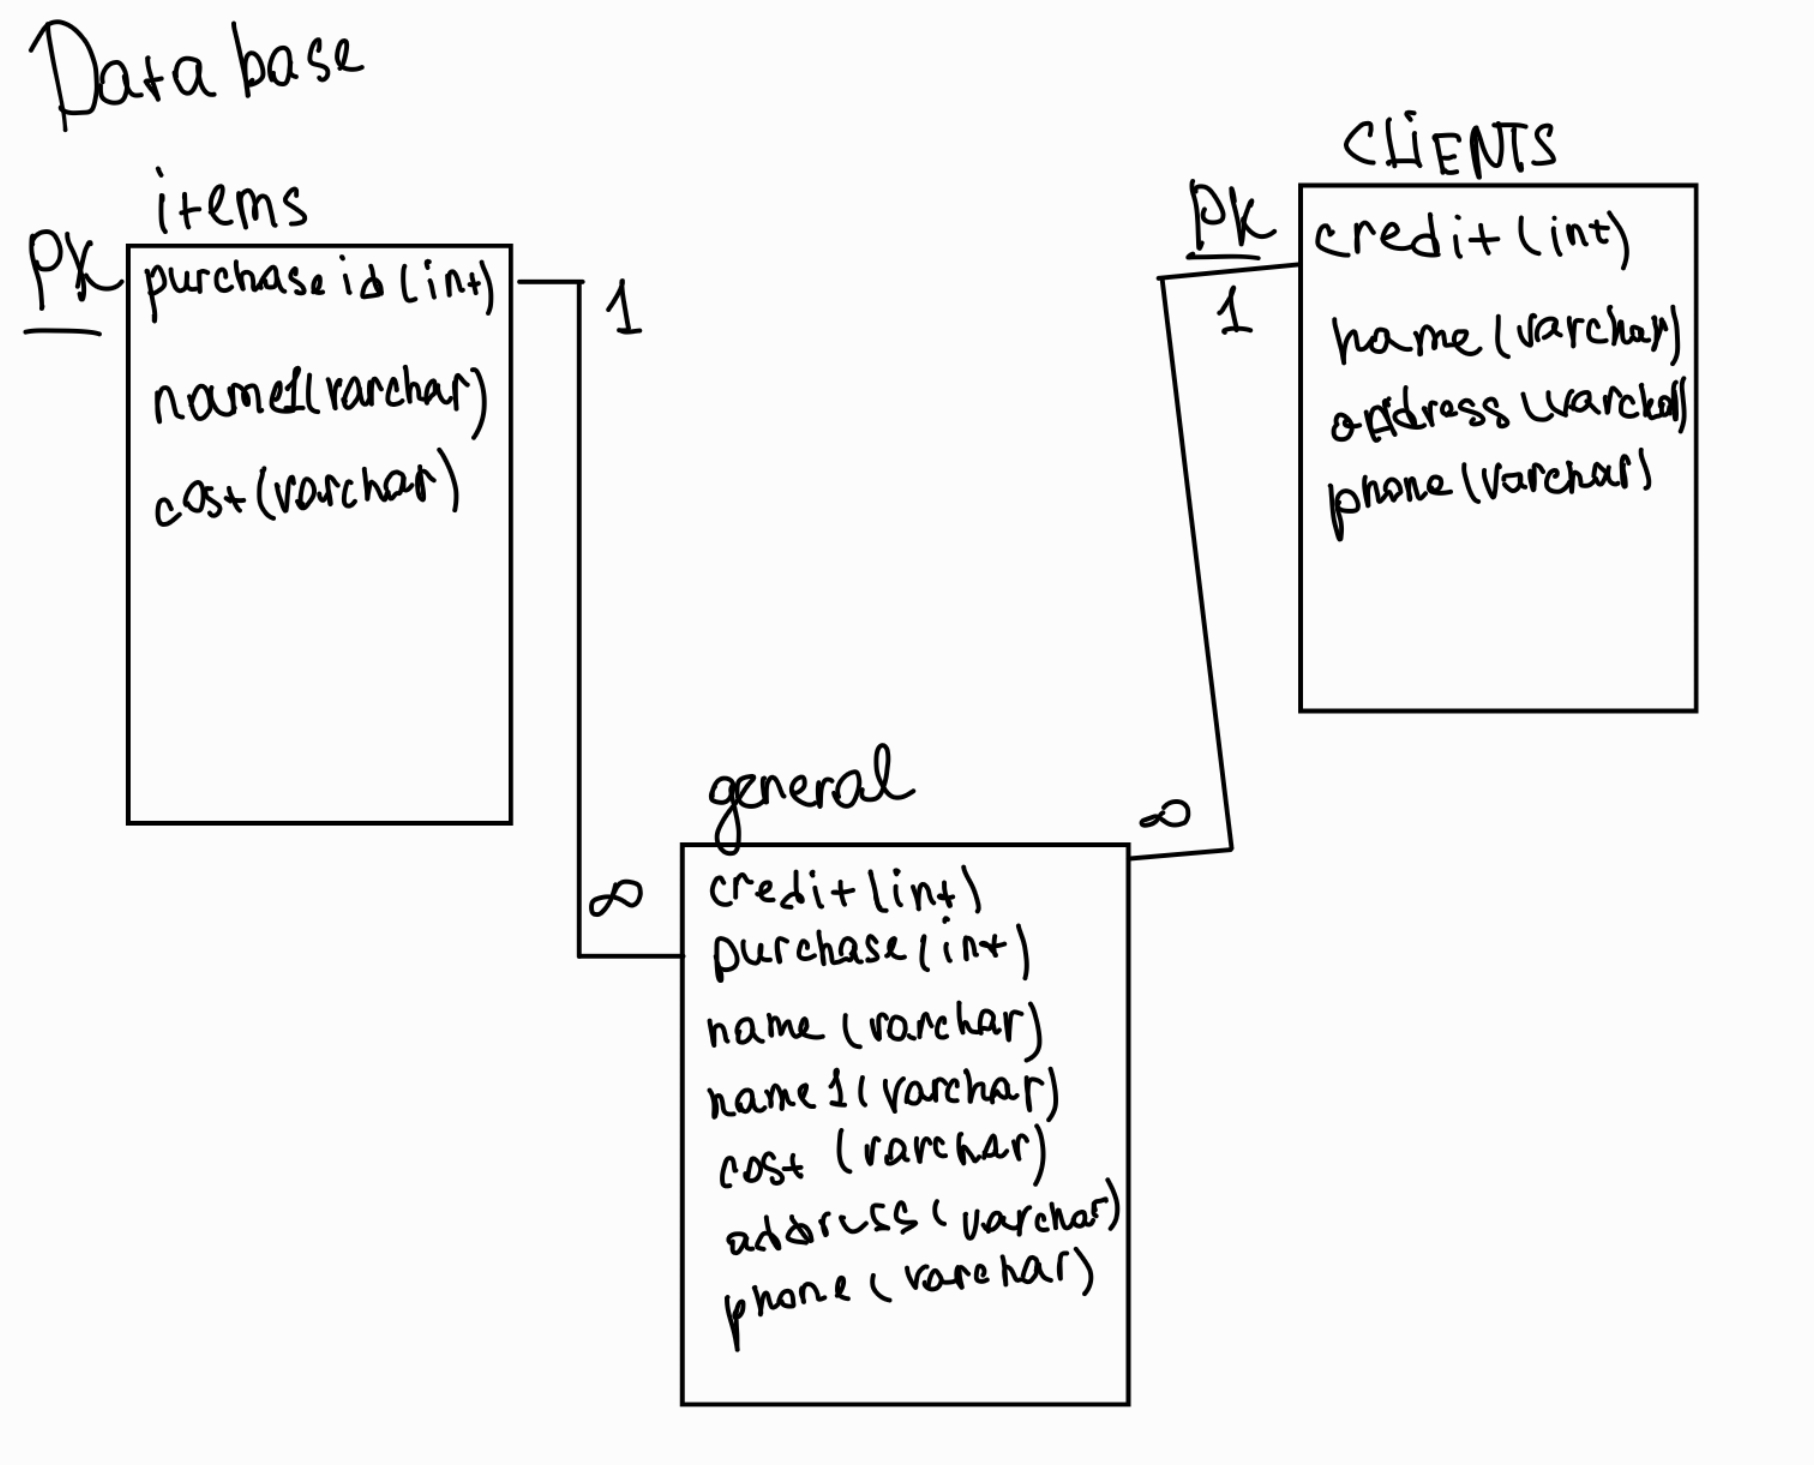 Data base
items
PK
purchase id (int)
name1(varchar)
cost(varchar)
1
∞
CLiENTS
PK
1
credit (int)
name (varchar)
address (varchar)
phone (varchar)
∞
general
credit (int)
purchase (int)
name (varchar)
name 1( varchar)
cost (varchar)
address ( varchar)
phone ( varchar)